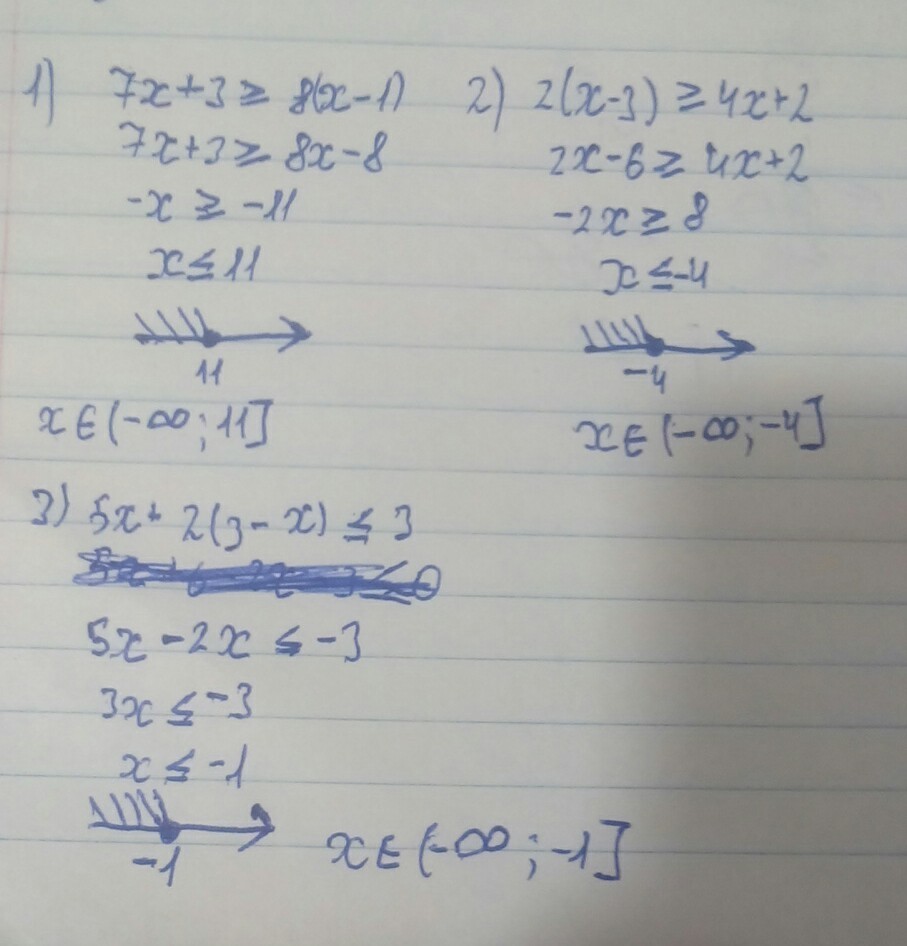 1) 7x+3 ≥ 8(x-1)
7x+3 ≥ 8x-8
-x ≥ -11
x ≤ 11
11
x∈(-∞;11]
2) 2(x-3) ≥ 4x+2
2x-6 ≥ 4x+2
-2x ≥ 8
x ≤ -4
-4
x∈(-∞;-4]
3) 5x+2(3-x) ≤ 3
5x-2x ≤ -3
3x ≤ -3
x ≤ -1
-1
x∈(-∞;-1]